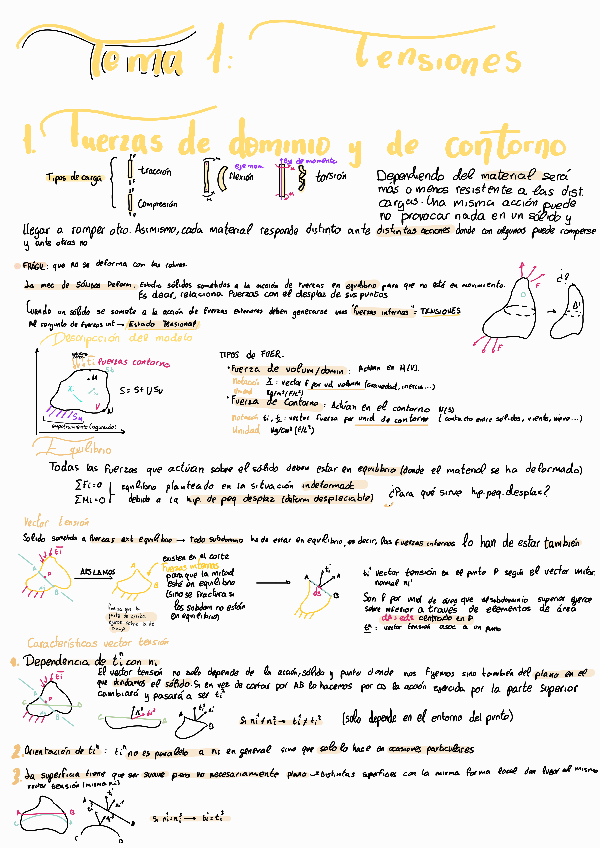 Tema 1: Tensiones
1. Fuerzas de dominio y de contorno
Tipos de carga
tracción
Compresión
eje mom.
flexión
eje de momento
torsión
Dependiendo del material será
más o menos resistente a las dist.
cargas. Una misma acción puede
no provocar nada en un sólido y
llegar a romper otro. Asimismo, cada material responde distinto ante distintas acciones donde con algunas puede romperse
y ante otras no
FRÁGIL: que no se deforma con las
La mec de Sólidos Deform. Estudia sólidos sometidos a la acción de fuerzas en equilibrio para que no esté en movimiento.
Es decir, relaciona fuerzas con el desplaz de sus puntos
Cuando un sólido se somete a la acción de fuerzas exteriores deben generarse unas "fuerzas internas" = TENSIONES
Al conjunto de fuerzas int → Estado Tensional
F
F
¿?
Descripción del modelo
fuerzas contorno
S = St U Su
TIPOS DE FUER.
· Fuerza de volum/domin: Actúan en M(V).
notación X: vector f por ud. volumen (gravedad, inercia...)
Unidad kg/m³ (F/L³)
· Fuerza de Contorno: Actúan en el contorno N(S)
notación ti, t: vector fuerza por unid de contorno (contacto entre sólidos, viento, nieve...)
Unidad kg/m² (F/L²)
Equilibrio
Todas las fuerzas que actúan sobre el sólido deben estar en equilibrio (donde el material se ha deformado)
∑Fi=0
∑Mi=0
equilibrio planteado en la situación indeformada
debido a la hip. de peq desplaz (deform despreciable)
¿Para qué sirve hip. peq. desplac?
Vector tensión
Sólido sometido a fuerzas ext equilibrio → Todo subdominio ha de estar en equilibrio, es decir, las fuerzas internas lo han de estar también
AISLAMOS
existen en el corte
fuerzas internas
para que la mitad
esté en equilibrio
(sino se fractura si
los subdom no están
en equilibrio)
ti vector tensión en el punto P según el vector unitar.
normal ni
Son f por unid de área que el subdominio superior ejerce
sobre inferior a través de elementos de área
centrado en P
: vector tensión asoc a un punto
Características vector tensión
1. Dependencia de ti con ni
El vector tensión no solo depende de la acción, sólido y punto donde nos fijemos sino también del plano en el
que dividamos el sólido. Si en vez de cortar por AB lo hacemos por CD la acción ejercida por la parte superior
cambiará y pasará a ser
Si ni¹ ≠ ni² → ti¹ ≠ ti² (solo depende en el entorno del punto)
2. Orientación de ti: ti no es paralelo a ni en general sino que solo lo hace en ocasiones particulares
3. La superficie tiene que ser suave pero no necesariamente plana → distintas superficies con la misma forma local dan lugar al mismo
vector tensión (misma ni)
A
B
C
D
Si ni¹ = ni² →